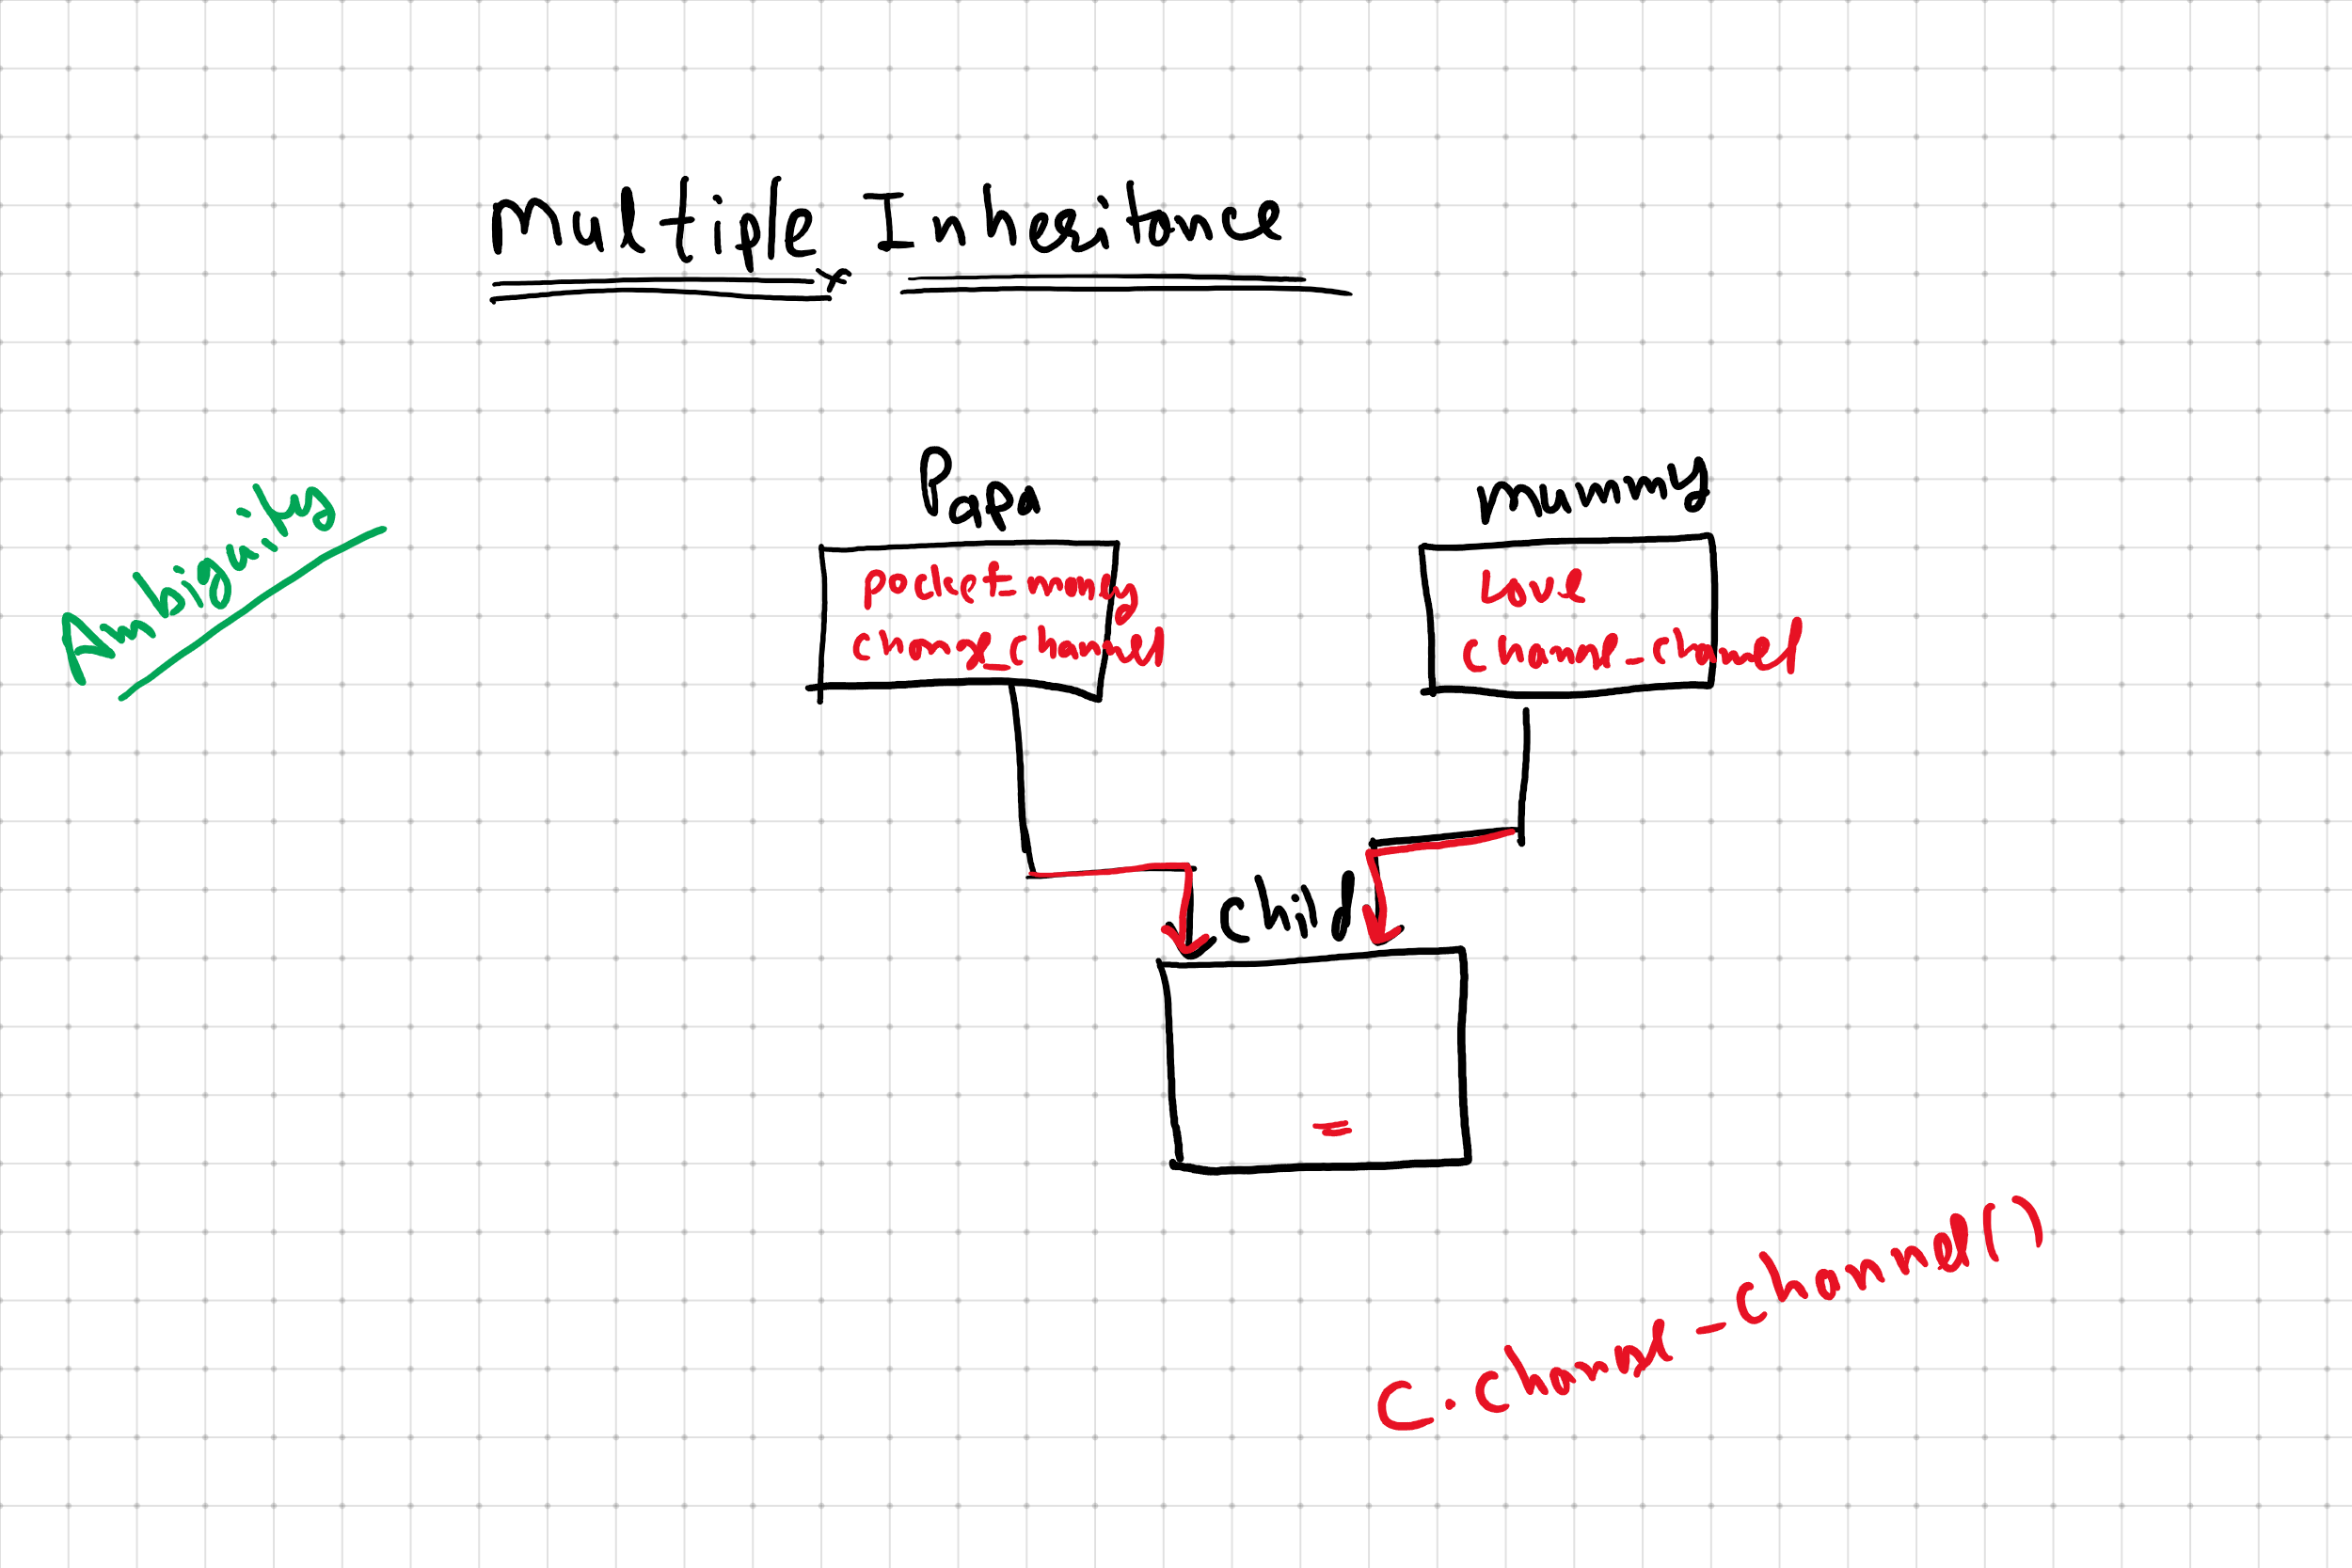 Multiple Inheritance
Ambiguity
Papa
mummy
pocket money
change_channel
Love
change_channel
child
C.change_channel()